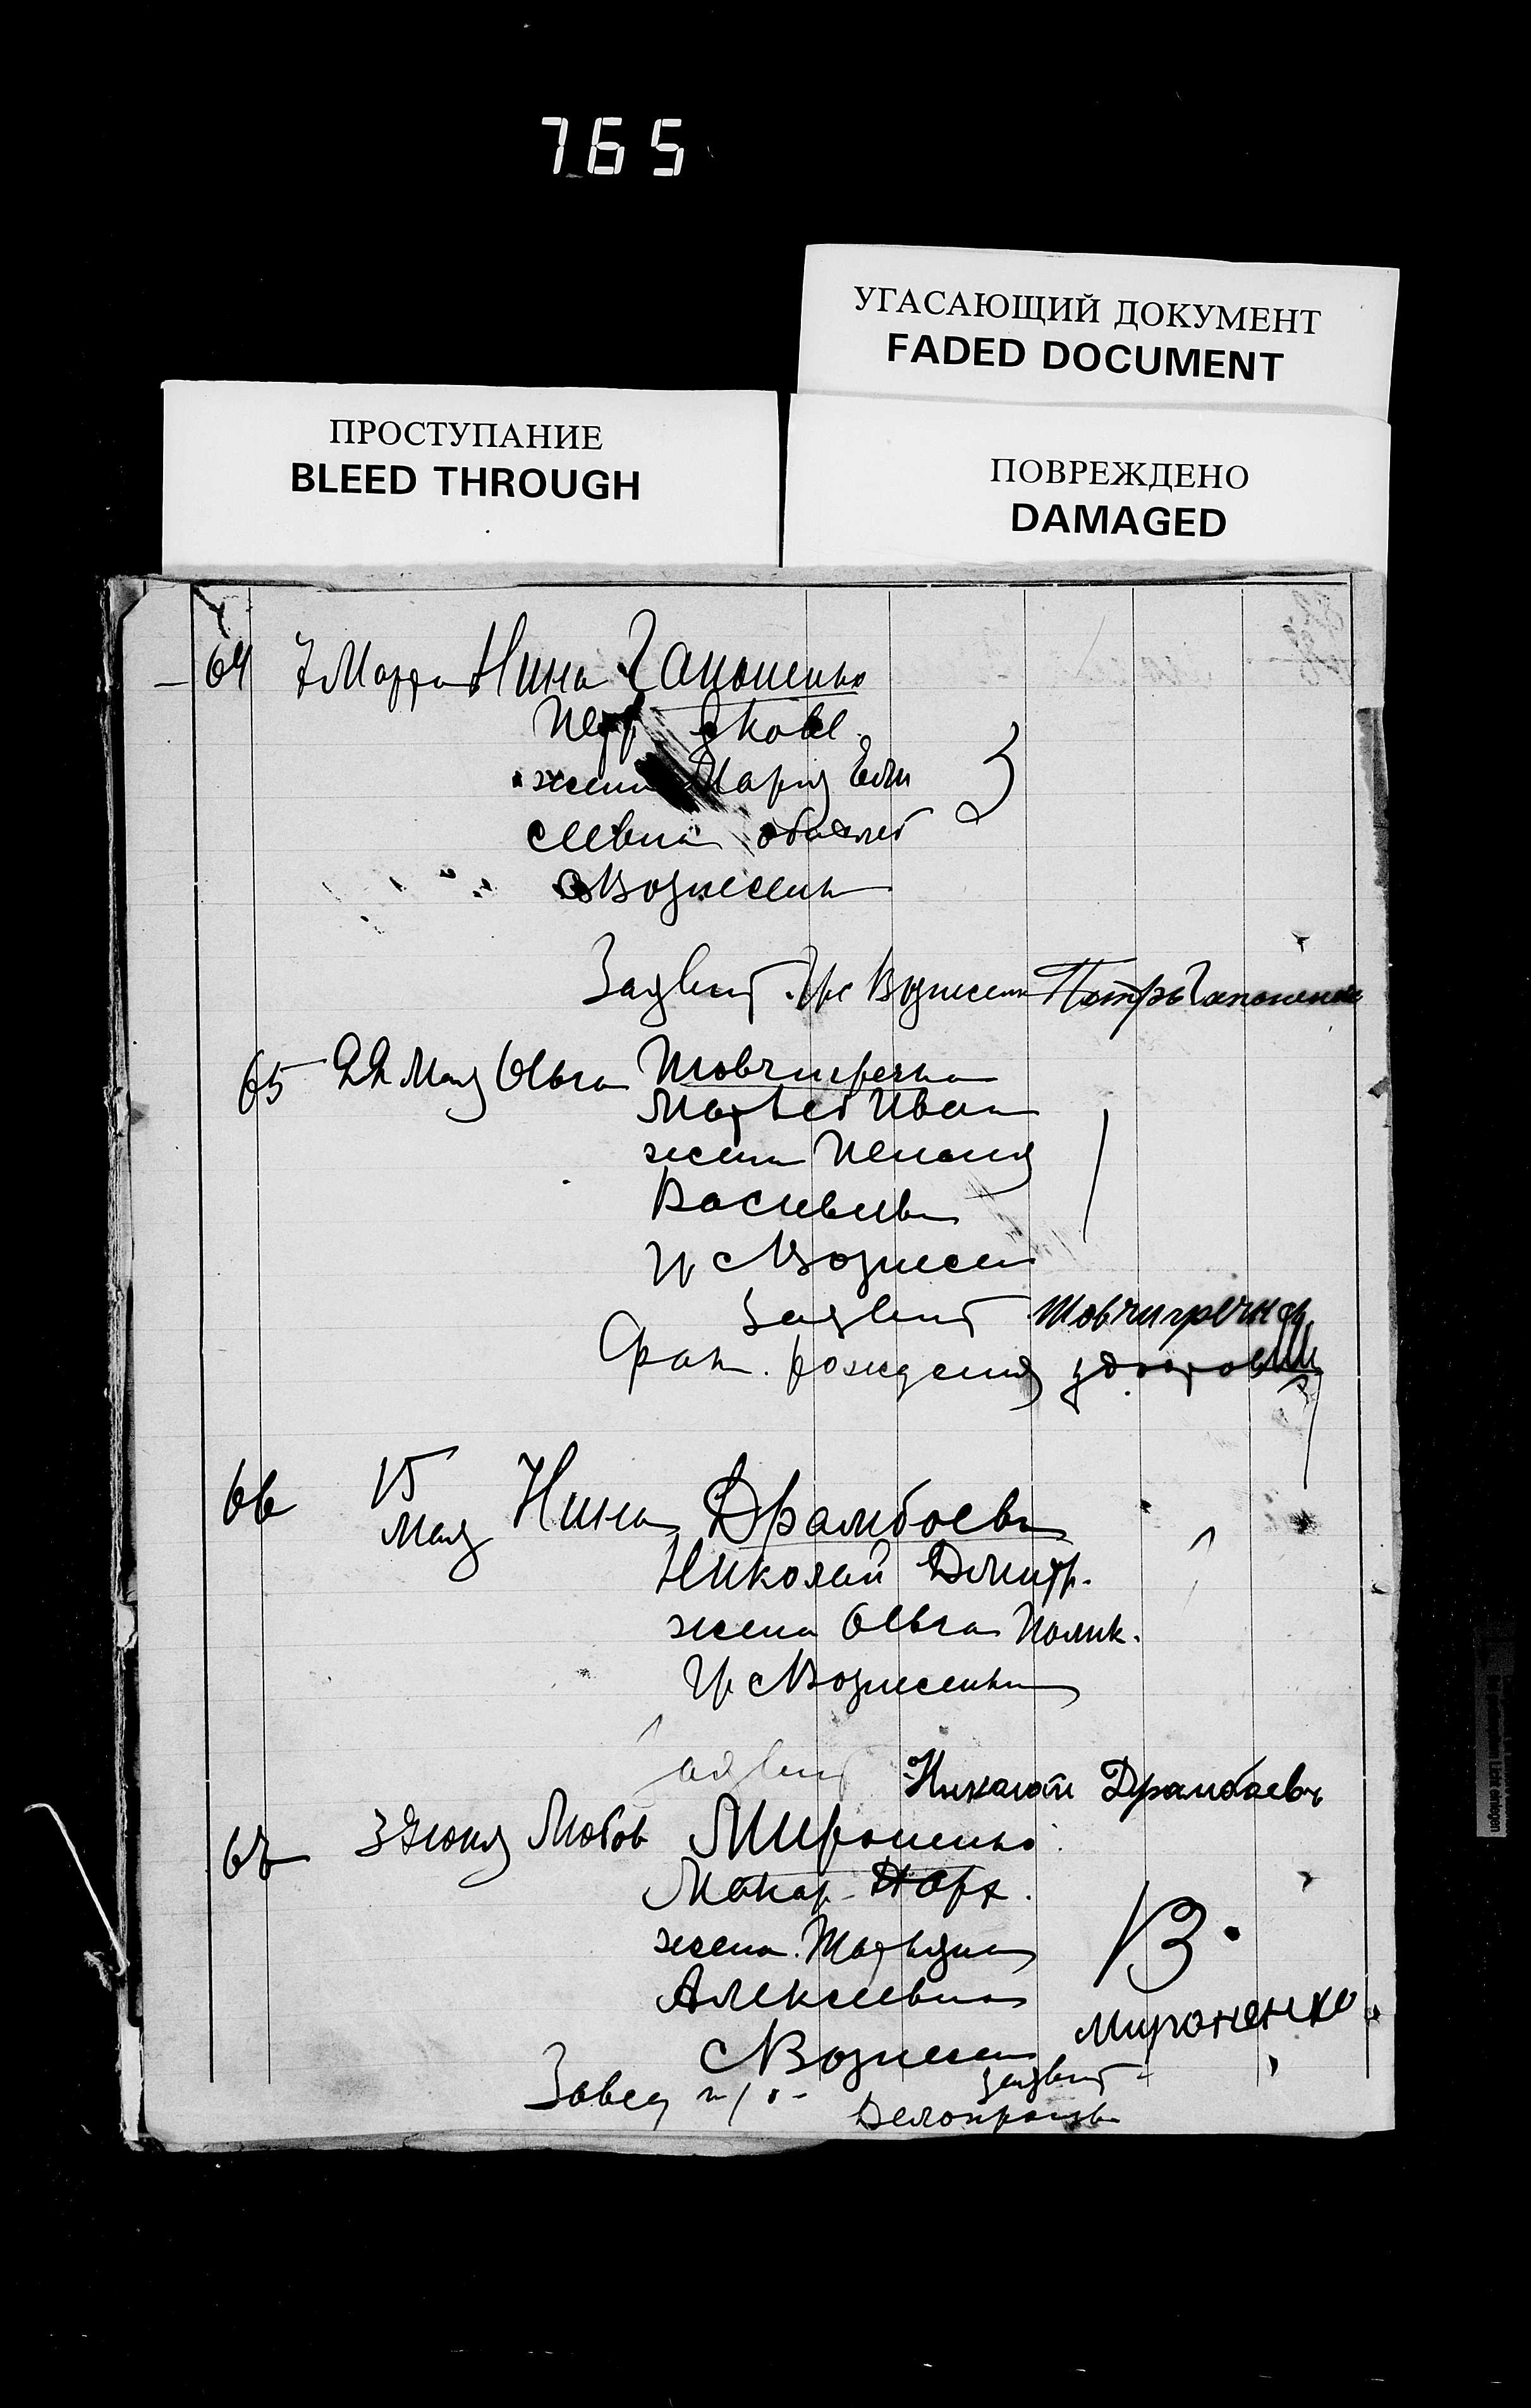 765
УГАСАЮЩИЙ ДОКУМЕНТ
FADED DOCUMENT
ПРОСТУПАНИЕ
BLEED THROUGH
ПОВРЕЖДЕНО
DAMAGED
64 7 Марта Нина Гапоненко
Петр Яковл.
жена Мария Ели
сеевна оба лет
с Вознесенк
3
Заявит. гр с Вознесенк Петръ Гапоненко
65 22 Мая Ольга Товчигречка
Матвей Иван
жена Пелагия
Васильев
гр с Вознесен
Заявит Товчигречка
Факт. рождения удостовер
66 15 Мая Нина Драмбоева
Николай Дмитр.
жена Ольга Полик.
гр с Вознесенки
Заявит Николай Драмбаевъ
67 3 Июня Любов Мироненко
Макар
жена Татьяна
Алексеевна
13
Мироненко
с Вознесен
заявит
Завед п/о
Делопроизв